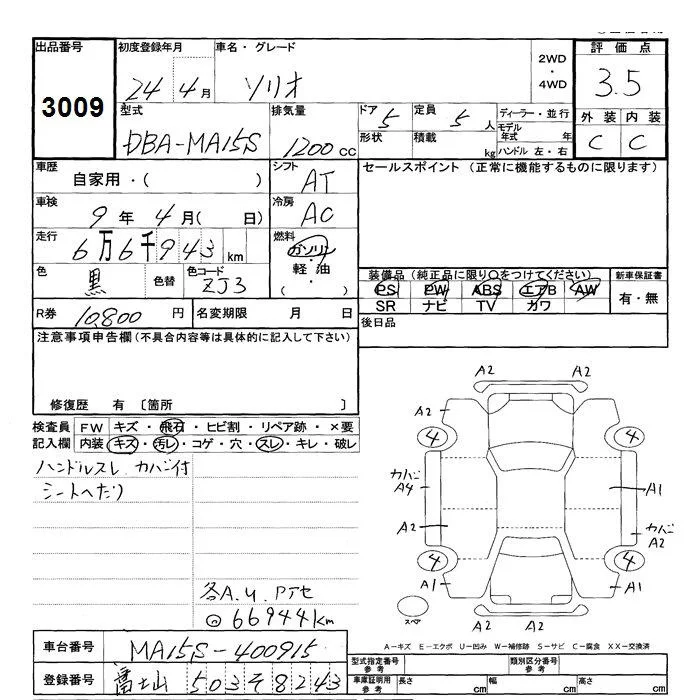 出品番号
3009
初度登録年月
24 4月
車名・グレード
ソリオ
2WD
・
4WD
評価点
3.5
型式
DBA-MA15S
排気量
1200cc
ドア 5
定員 5人
形状
積載 kg
ディーラー・並行
モデル年式 年
ハンドル 左・右
外装 内装
C C
車歴
自家用・( )
シフト
AT
セールスポイント (正常に機能するものに限ります)
車検
9年 4月( 日)
冷房
AC
走行
6万6千943km
燃料
ガソリン
・
軽油
( ・ )
色
黒
色替
色コード
ZJ3
装備品 (純正品に限り○をつけてください)
PS PW ABS エアB AW
SR ナビ TV カワ
新車保証書
有・無
R券 10,800円
名変期限 月 日
後日品
注意事項申告欄 (不具合内容等は具体的に記入して下さい)
修復歴 有 〔箇所 〕
検査員 FW キズ・飛石・ヒビ割・リペア跡・×要
記入欄 内装 キズ・汚レ・コゲ・穴・スレ・キレ・破レ
ハンドルスレ カバー付
シートヘタリ
各A.U.PTセ
66944km
A2 A2
A2
4 4
カバー
A4
A1
A2
カバー
A2
4 4
A1 A1
A2 A2
スペア
A－キズ E－エクボ U－凹み W－補修跡 S－サビ C－腐食 XX－交換済
車台番号 MA15S-400915
登録番号 富士山 503 ひ 8243
型式指定番号
参考
類別区分番号
参考
車庫証明用
参考
長さ cm 幅 cm 高さ cm